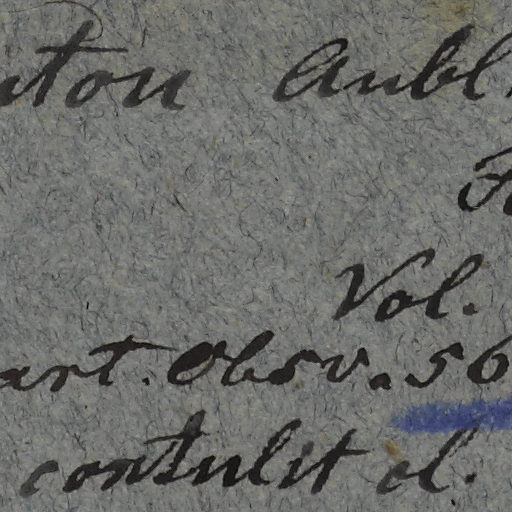 uton Aubl.
Vol.
art. Obsv. 56
contulit cl.